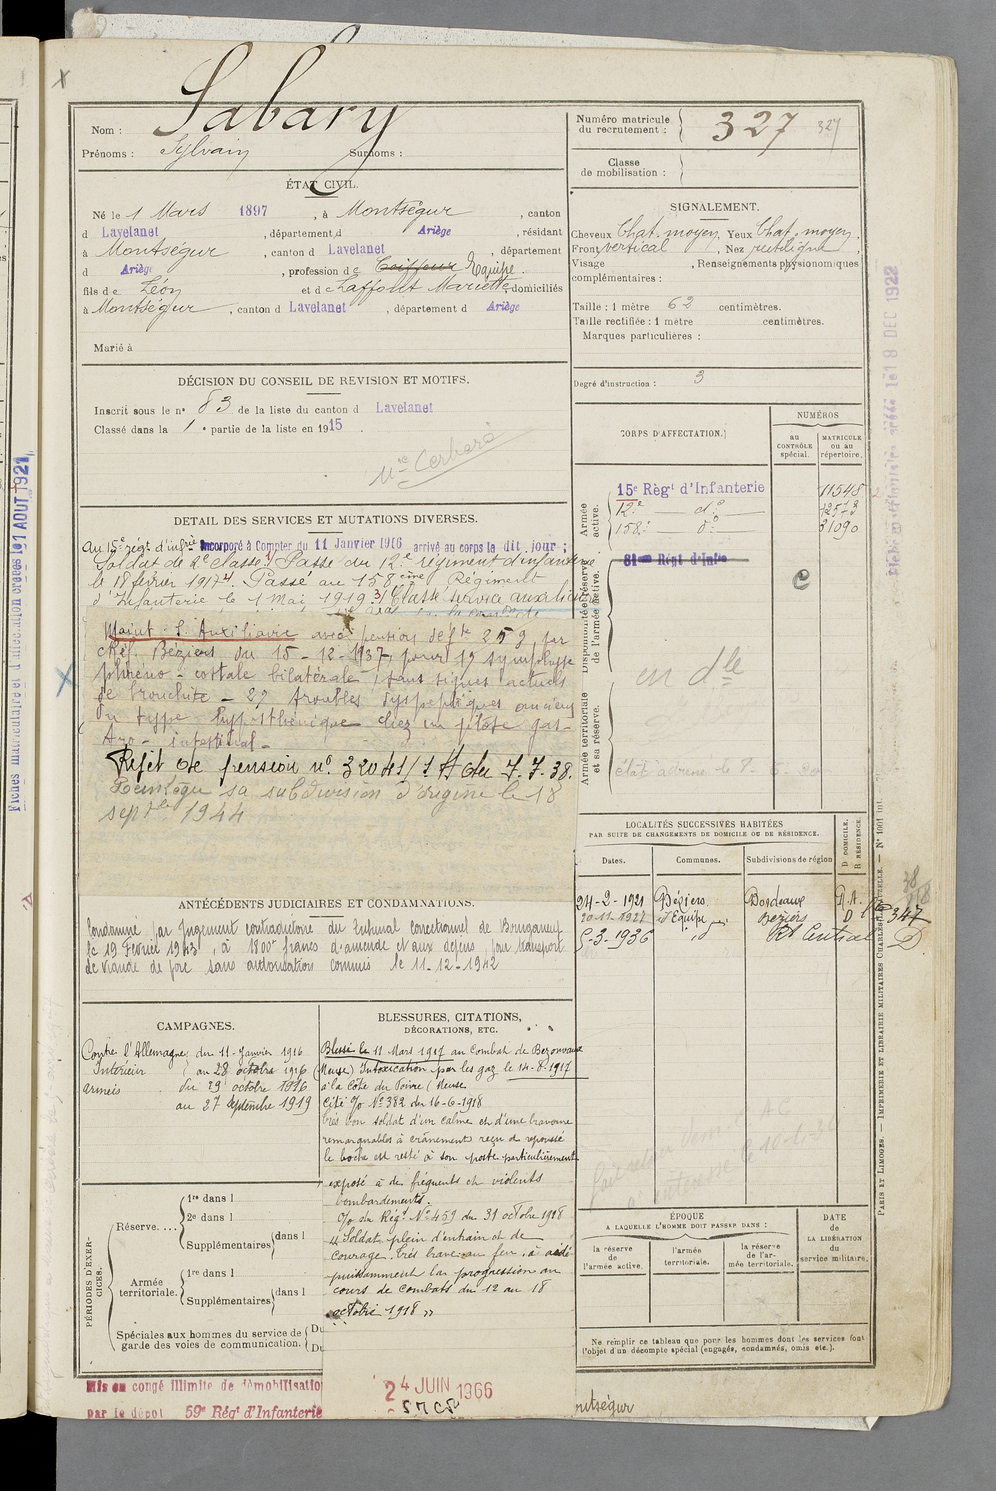 Nom : Sabary
Prénoms : Sylvain Surnoms :
ÉTAT CIVIL.
Né le 1 Mars 1897, à Montségur, canton
d Lavelanet, département d Ariège, résidant
à Montségur, canton d Lavelanet, département
d Ariège, profession de Coiffeur Equipe.
fils de Léon et de Laffont Mariette, domiciliés
à Montségur, canton d Lavelanet, département d Ariège
Marié à
DÉCISION DU CONSEIL DE REVISION ET MOTIFS.
Inscrit sous le n° 83 de la liste du canton d Lavelanet
Classé dans la 1e partie de la liste en 1915.
DETAIL DES SERVICES ET MUTATIONS DIVERSES.
Au 15e régt d'infrie Incorporé à Compter du 11 Janvier 1916 arrivé au corps le dit jour ;
Soldat de 2e classe. Passé au 12e régiment d'infanterie
le 18 février 1917. Passé au 158ème Régiment
d'Infanterie le 1 Mai 1919. Classé service auxiliaire
Maint. S. Auxiliaire avec pension def. 25 %, par
C.Réf. Béziers du 15-12-1937, pour 1º symphyse
phréno-costale bilatérale, sans signes actuels
de bronchite - 2º troubles dyspeptiques anciens
du type hyposthénique chez un ptosé gas-
tro-intestinal-
Rejet de pension n° 32041/1 A du 7.7.38.
Réintègre sa subdivision d'origine le 18
septbre 1944
ANTÉCÉDENTS JUDICIAIRES ET CONDAMNATIONS.
Condamné par jugement contradictoire du tribunal correctionnel de Bourganeuf
le 19 Février 1943, à 1800 francs d'amende et aux dépens, pour transport
de viande de porc sans autorisation commis le 11-12-1942
CAMPAGNES.
Contre l'Allemagne du 11-Janvier 1916
Intérieur au 28 octobre 1916
armées du 29 octobre 1916
au 27 Septembre 1919
BLESSURES, CITATIONS,
DÉCORATIONS, ETC.
Blessé le 11 Mars 1917 au Combat de Bezonvaux
(Meuse) Intoxication par les gaz le 14-8-1917
à la Côte du Poivre (Meuse
Cité O/o N° 382 du 16-6-1918
très bon soldat d'un calme et d'une bravoure
remarquables à crânement reçu et repoussé
le boche est resté à son poste particulièrement
exposé à de fréquents et violents
bombardements.
O/o du Régt N° 459 du 31 octobre 1918
« Soldat plein d'entrain et de
courage très brave au feu, à aidé
puissamment la progression au
cours de combats du 12 au 18
octobre 1918 »
PÉRIODES D'EXERCICES.
Réserve.... 1re dans l
2e dans l
Supplémentaires dans l
Armée territoriale. 1re dans l
Supplémentaires dans l
Spéciales aux hommes du service de garde des voies de communication. Du
Du
Mis en congé illimité de démobilisatio
par le dépôt 59e Régt d'Infanterie
24 JUIN 1966
Numéro matricule du recrutement : 327 327
Classe de mobilisation :
SIGNALEMENT.
Cheveux Chat. moyen, Yeux Chat. moyen,
Front vertical, Nez rectiligne
Visage , Renseignements physionomiques
complémentaires :
Taille : 1 mètre 62 centimètres.
Taille rectifiée : 1 mètre centimètres.
Marques particulières :
Degré d'instruction : 3
CORPS D'AFFECTATION.
NUMÉROS
AU CONTRÔLE spécial.
MATRICULE OU AU RÉPERTOIRE.
Armée active.
15e Régt d'Infanterie 11548
12e do 12573
158e do 31090
Disponibilité et réserve de l'armée active.
81eme Régt d'Infie
Armée territoriale et sa réserve.
en dle
LOCALITÉS SUCCESSIVES HABITÉES
PAR SUITE DE CHANGEMENTS DE DOMICILE OU DE RÉSIDENCE.
Dates. Communes. Subdivisions de région D DOMICILE. R RÉSIDENCE.
24-2-1921 Béziers Bordeaux
20-11-1927 d'Equipe Béziers D
5-3-1936 id Rt Central D
347
ÉPOQUE
A LAQUELLE L'HOMME DOIT PASSER DANS :
la réserve de l'armée active.
l'armée territoriale.
la réserve de l'armée territoriale.
DATE de LA LIBÉRATION du service militaire.
Ne remplir ce tableau que pour les hommes dont les services font
l'objet d'un décompte spécial (engagés, condamnés, omis etc.).
PARIS ET LIMOGES. — IMPRIMERIE ET LIBRAIRIE MILITAIRES CHARLES-LAVAUZELLE. — N° 1001 int.
Fiches matriculaire et d'affectation créées le 1 AOUT 1921